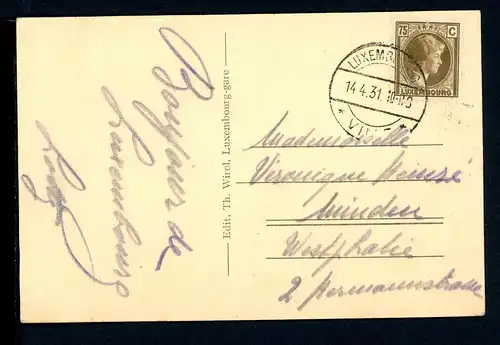 Bonjour de
Luxembourg
Edit. Th. Wirol, Luxembourg-gare
75 C
LUXEMBOURG
LUXEMBOURG
14.4.31. 10-11
* VILLE
Mademoiselle
Véronique Heinzé
Minden
Westphalie
2 Hermannstrasse